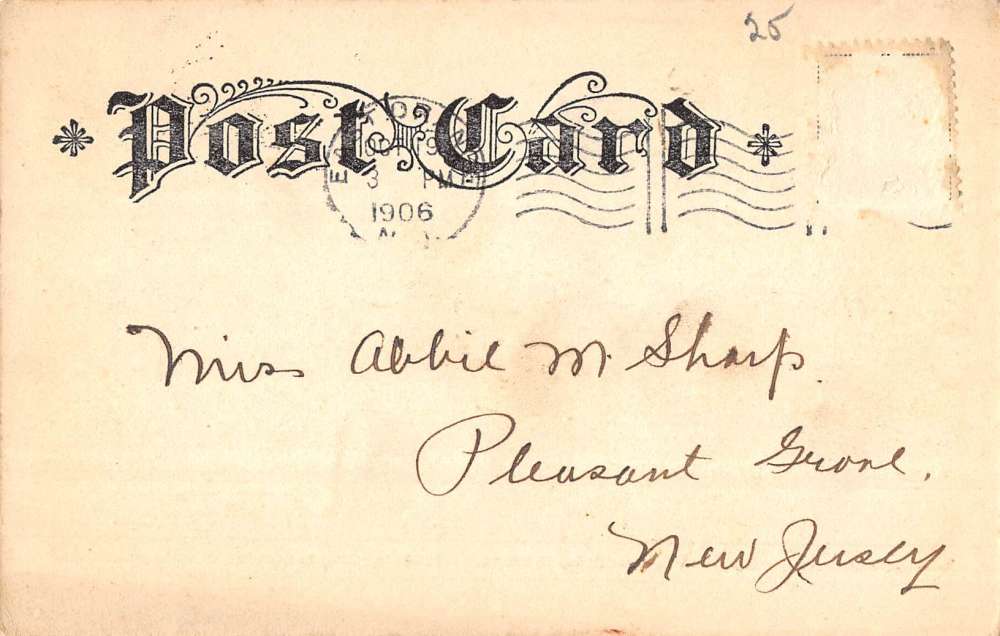 25
Post Card
OCT 19
3 PM
1906
Miss Abbie M. Sharp.
Pleasant Grove.
New Jersey